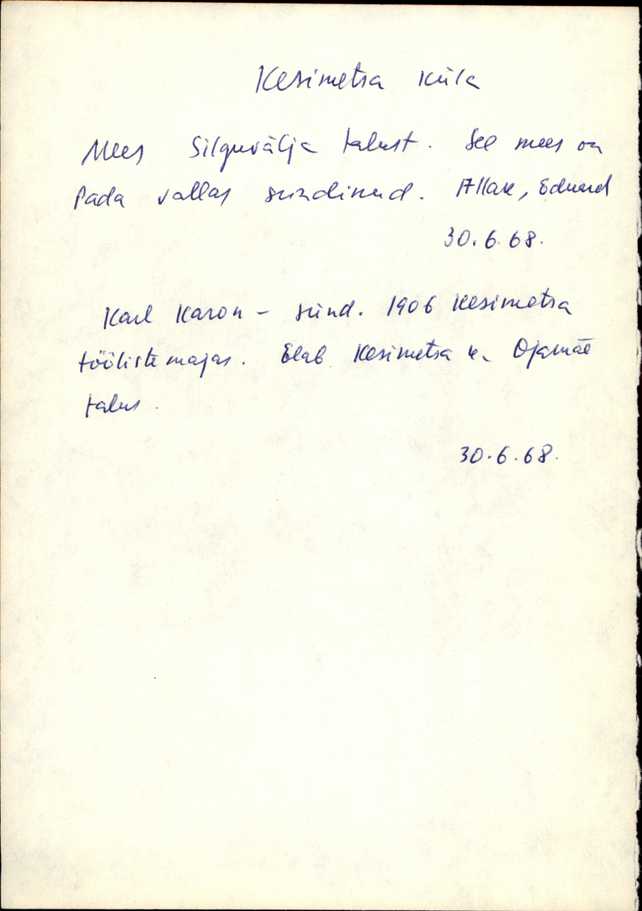 Kesimetsa küla
Mees Silguvälja talust. See mees on
Pada vallas sündinud. Allase, Eduard
30.6.68.
Karl Karon - sünd. 1906 Kesimetsa
tööliste majas. Elab Kesimetsa k. Ojamäe
talus.
30.6.68.